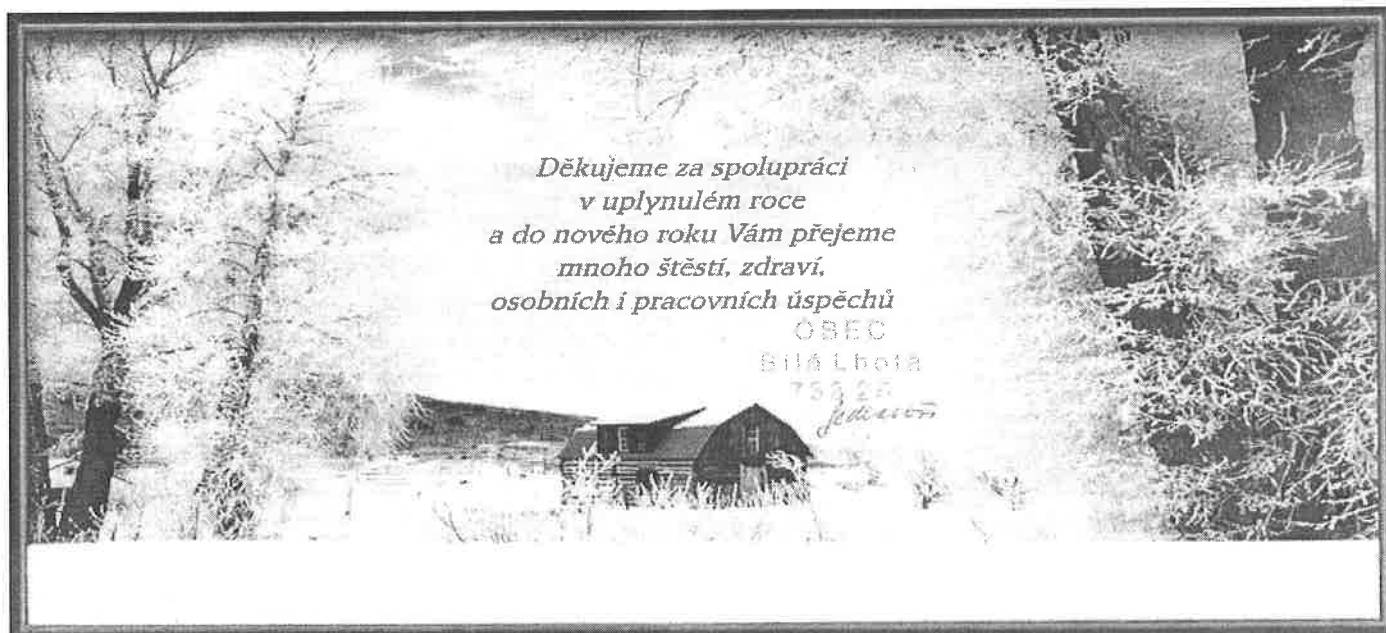 Děkujeme za spolupráci
v uplynulém roce
a do nového roku Vám přejeme
mnoho štěstí, zdraví,
osobních i pracovních úspěchů
OBEC
Bílá Lhota
783 26